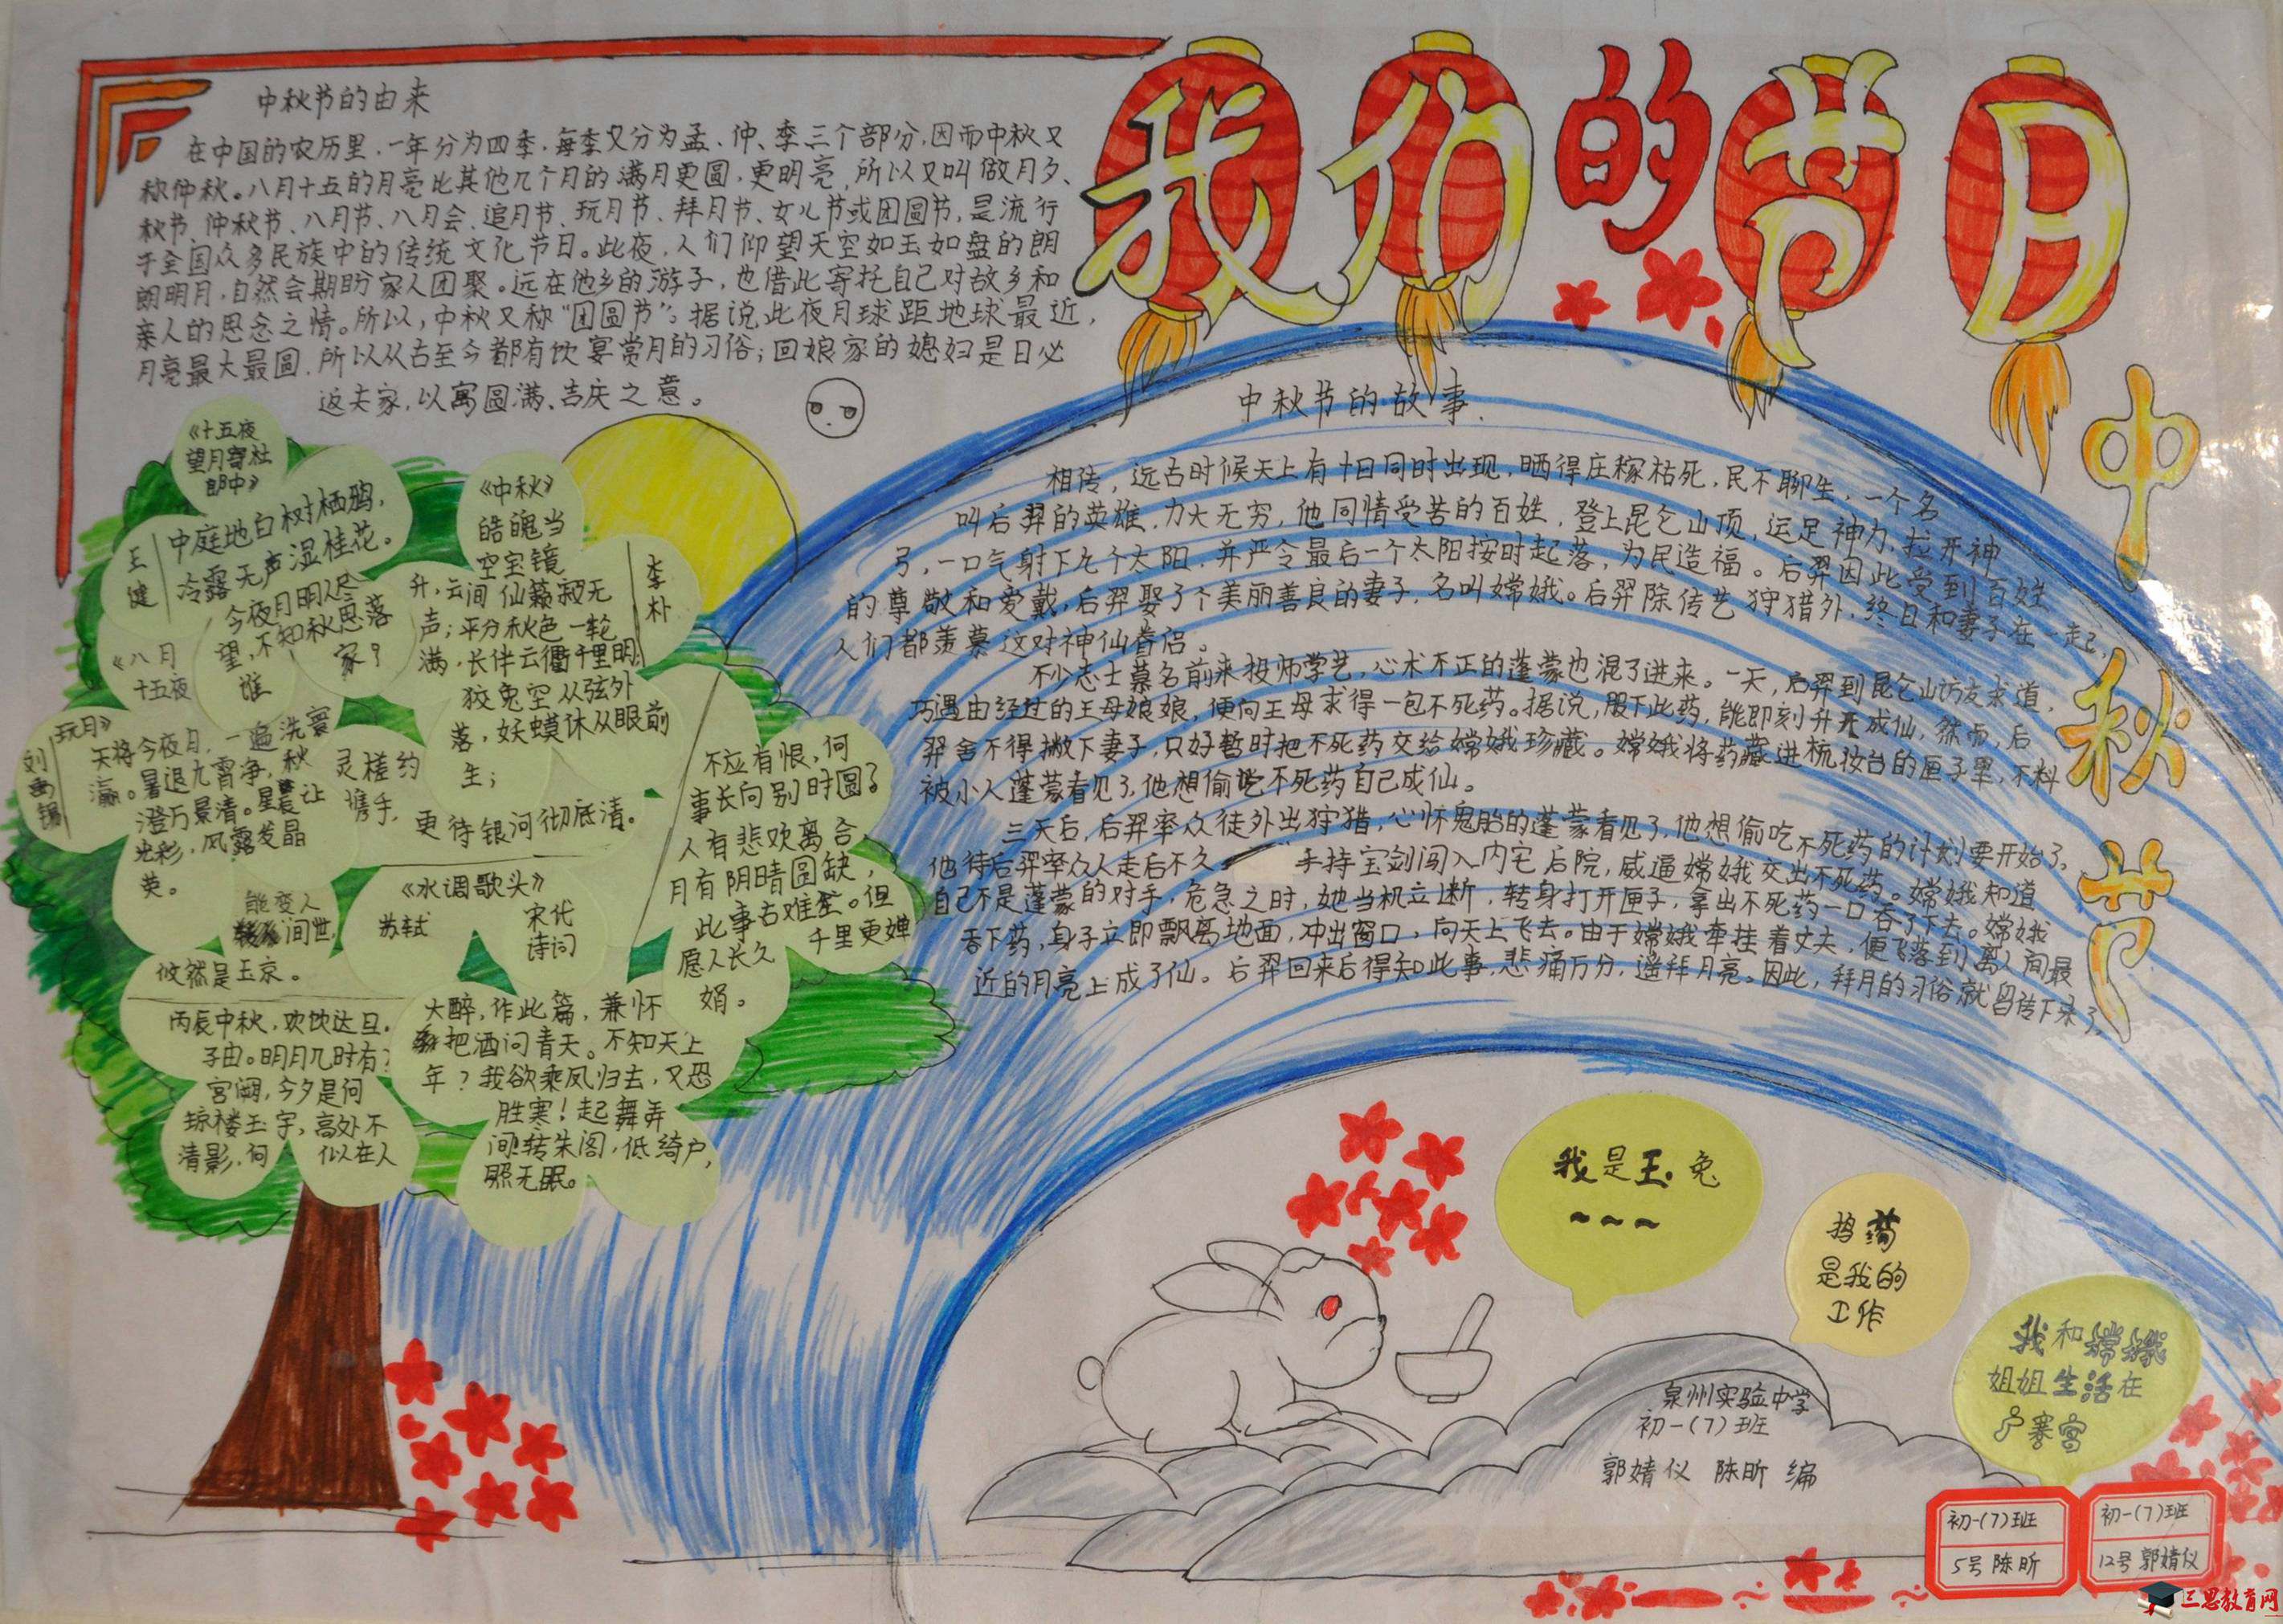 我们的节日
中秋节
中秋节的由来
在中国的农历里,一年分为四季,每季又分为孟、仲、季三个部分,因而中秋又
称仲秋。八月十五的月亮比其他几个月的满月更圆,更明亮,所以又叫做月夕、
秋节、仲秋节、八月节、八月会、追月节、玩月节、拜月节、女儿节或团圆节,是流行
于全国众多民族中的传统文化节日。此夜,人们仰望天空如玉如盘的朗
朗明月,自然会期盼家人团聚。远在他乡的游子,也借此寄托自己对故乡和
亲人的思念之情。所以,中秋又称“团圆节”。据说此夜月球距地球最近,
月亮最大最圆,所以从古至今都有饮宴赏月的习俗;回娘家的媳妇是日必
返夫家,以寓圆满、吉庆之意。
中秋节的故事.
相传,远古时候天上有十日同时出现,晒得庄稼枯死,民不聊生,一个名
叫后羿的英雄,力大无穷,他同情受苦的百姓,登上昆仑山顶,运足神力,拉开神
弓,一口气射下九个太阳,并严令最后一个太阳按时起落,为民造福。后羿因此受到百姓
的尊敬和爱戴,后羿娶了个美丽善良的妻子,名叫嫦娥。后羿除传艺狩猎外,终日和妻子在一起,
人们都羡慕这对神仙眷侣。
不少志士慕名前来投师学艺,心术不正的蓬蒙也混了进来。一天,后羿到昆仑山访友求道,
巧遇由经过的王母娘娘,便向王母求得一包不死药。据说,服下此药,能即刻升天成仙,然而,后
羿舍不得撇下妻子,只好暂时把不死药交给嫦娥珍藏。嫦娥将药藏进梳妆台的匣子里,不料
被小人蓬蒙看见了,他想偷吃不死药自己成仙。
三天后,后羿率众徒外出狩猎,心怀鬼胎的蓬蒙看见了,他想偷吃不死药的计划要开始了。
他待后羿率众人走后不久 手持宝剑闯入内宅后院,威逼嫦娥交出不死药。嫦娥知道
自己不是蓬蒙的对手,危急之时,她当机立断,转身打开匣子,拿出不死药一口吞了下去。嫦娥
吞下药,身子立即飘离地面,冲出窗口,向天上飞去。由于嫦娥牵挂着丈夫,便飞落到离人间最
近的月亮上成了仙。后羿回来后得知此事,悲痛万分,遥拜月亮。因此,拜月的习俗就留传下来了。
《十五夜
望月寄杜
郎中》
王
健
中庭地白树栖鸦,
冷露无声湿桂花。
今夜月明人尽
望,不知秋思落
谁
家?
《中秋》
李
朴
皓魄当
空宝镜
升,云间仙籁寂无
声;平分秋色一轮
满,长伴云衢千里明;
狡兔空从弦外
落,妖蟆休从眼前
生;
灵槎约
携手,
更待银河彻底清。
《八月
十五夜
玩月》
刘
禹
锡
天将今夜月,一遍洗寰
瀛。暑退九霄净,秋
澄万景清。星晨让
光彩,风露发晶
英。
能变人
间世,
攸然是玉京。
《水调歌头》
苏轼
宋代
诗词
丙辰中秋,欢饮达旦,
大醉,作此篇,兼怀
子由。明月几时有?
把酒问青天。不知天上
宫阙,今夕是何
年?我欲乘风归去,又恐
琼楼玉宇,高处不
胜寒!起舞弄
清影,何
似在人
间!转朱阁,低绮户,
照无眠。
不应有恨,何
事长向别时圆?
人有悲欢离合
月有阴晴圆缺,
此事古难全。但
愿人长久
千里更婵
娟。
我是玉兔
~~~
捣药
是我的
工作
我和嫦娥
姐姐生活在
广寒宫
泉州实验中学
初一(7)班
郭婧仪 陈昕 编
初一(7)班
5号 陈昕
初一(7)班
12号 郭婧仪
三思教育网